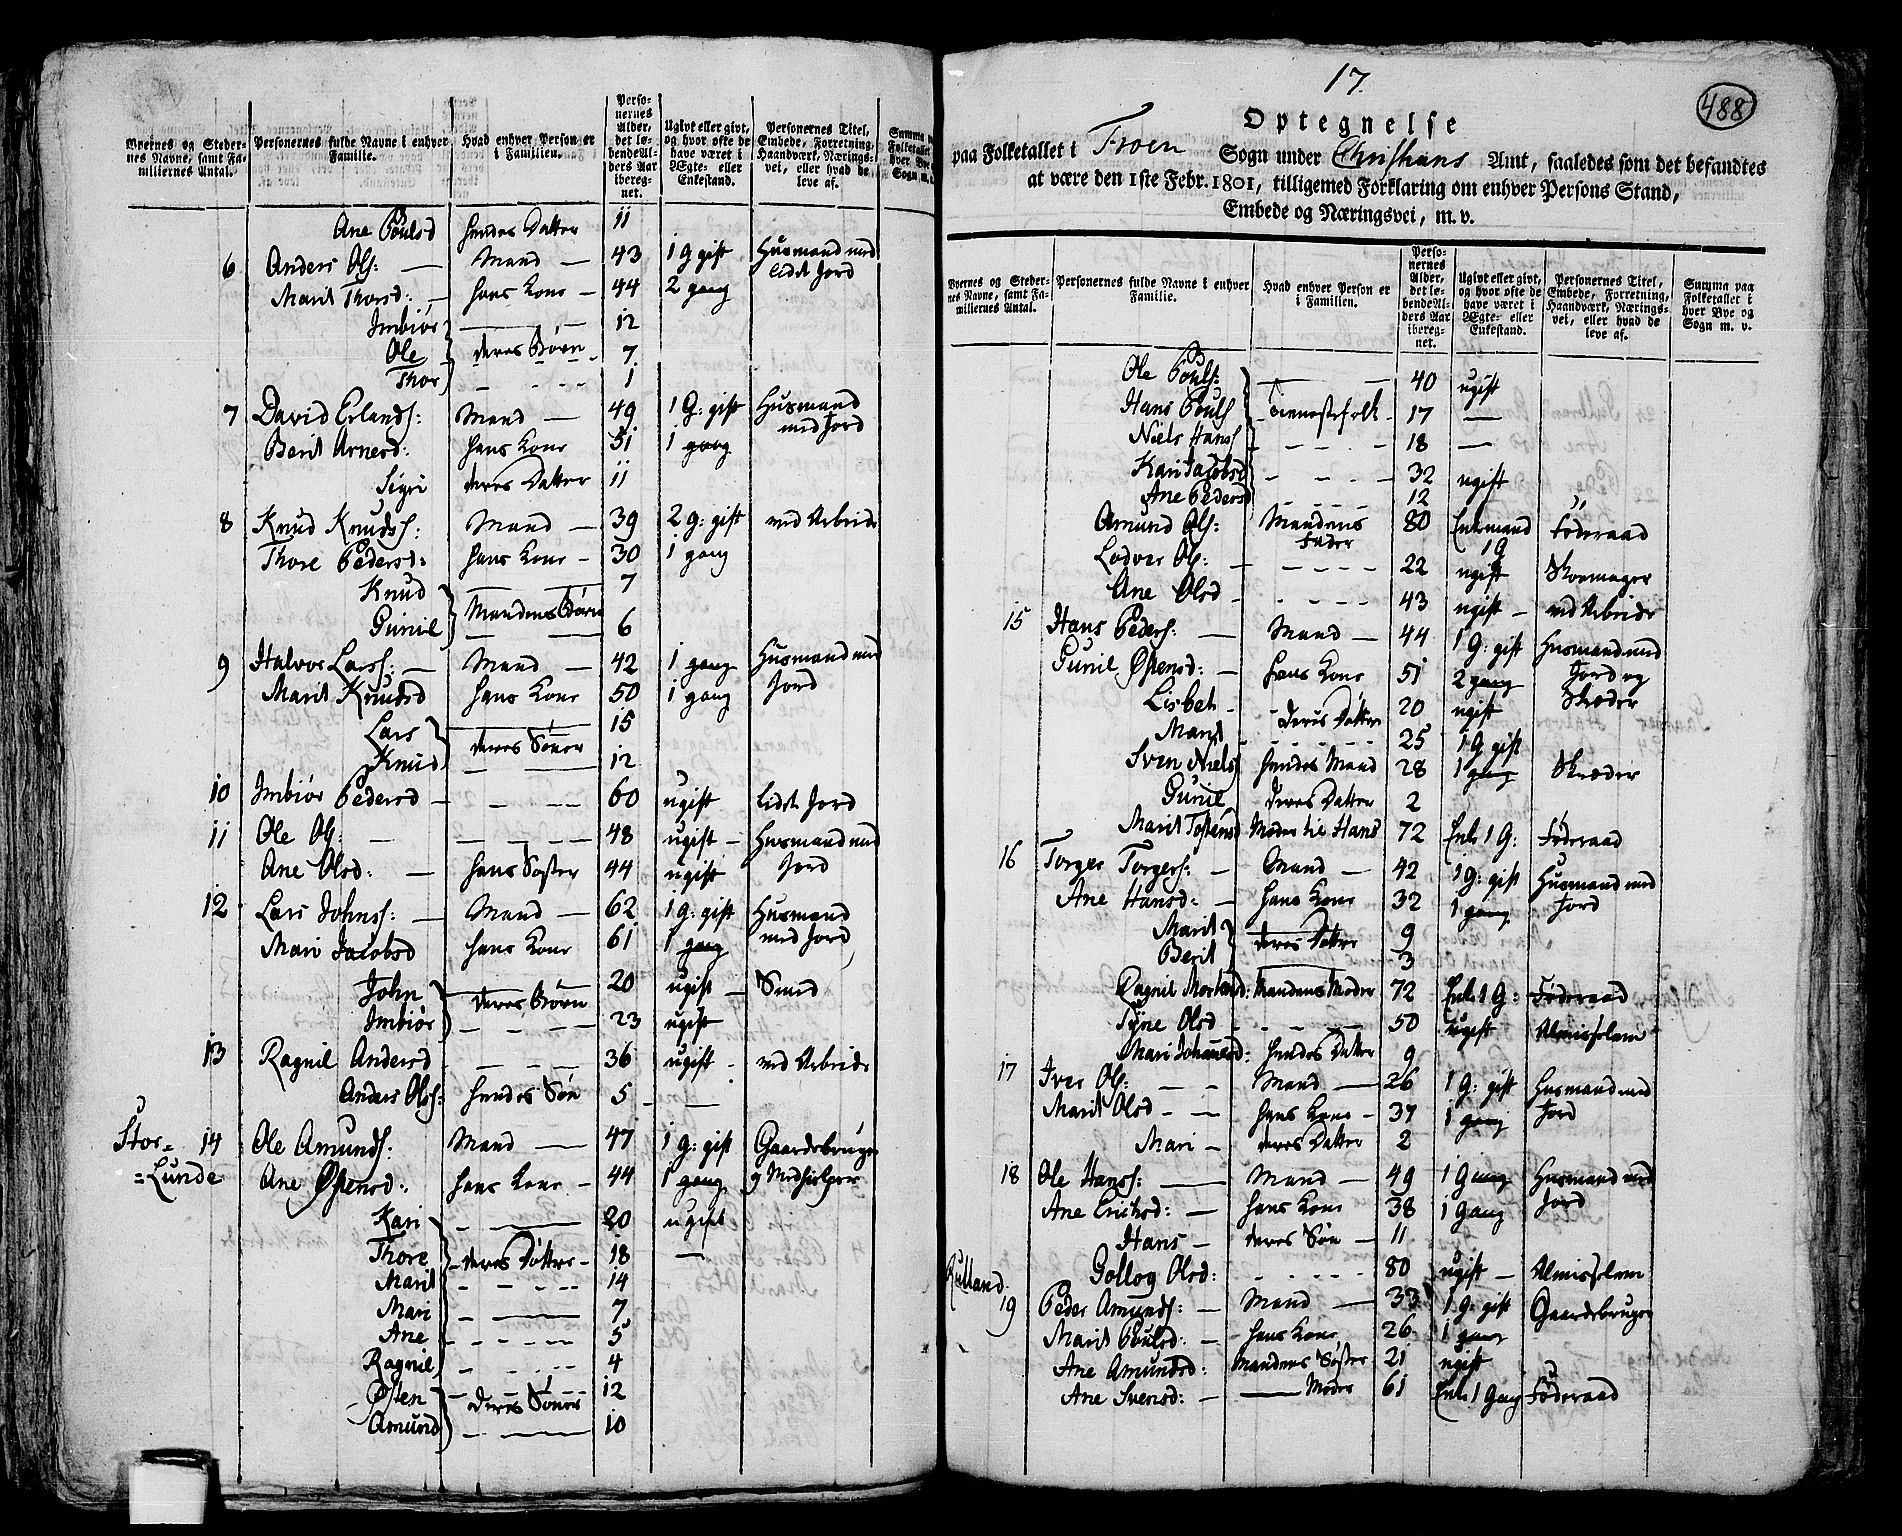 Byernes og Steder-
nes Navne, samt Fa-
miliernes Antal.
Personernes fulde Navne i enhver
Familie.
Hvad enhver Person er
i Familien.
Perso-
nernes
Alder,
det lø-
bende Al-
ders Aar
ibereg-
net.
Ugivt eller givt,
og hvor ofte de
have været i
Ægte- eller
Enkestand.
Personernes Titel,
Embede, Forretning,
Haandværk, Nærings-
vei, eller hvad de
leve af.
Summa
Folketallet
hver Bye
Sogn m.
Ane Poulsd hendes Datter 11
6 Anders Ols: — Mand — 43 1 G gift Husmand med
lidt Jord
Marit Thorsd: — hans Kone — 44 2 gang
Imbiør — 12
Ole deres Børn 7
Thor — 1
7 David Erlands: Mand — 49 1 G: gift Husmand
med Jord
Berit Arnesd: hans Kone 51 1 gang
Sigri deres Datter 11
8 Knud Knuds: Mand — 39 2 g: gift ved Arbeide
Thore Pedersd: hans Kone — 30 1 gang
Knud — 7
Gunil Mandens Børn 6
9 Halvor Larss: — Mand — 42 1 gang Husmand med
Jord
Marit Knudsd hans Kone 50 1 gang
Lars — 15
Knud deres Sønner 12
10 Imbiør Pedersd — 60 ugift lidt Jord
11 Ole Ols: — 48 ugift — Husmand med
Jord
Ane Olsd: — hans Søster 44 ugift
12 Lars Johnss: — Mand — 62 1 g: gift Husmand
med Jord
Mari Jacobsd hans Kone 61 1 gang
John — 20 ugift — Smed
Imbiør deres Børn 23 ugift
13 Ragnil Andersd — 36 ugift — ved Arbeide
Anders Olss: hendes Søn 5 —
Stor=
=Lunde
14 Ole Amunds: Mand — 47 1 g: gift Gaardebruger
Ane Østensd: hans Kone — 44 1 gang
Kari — 20 ugift
Thore deres Døttre — 18 —
Marit — 14
Mari — 7
Ane — 5
Ragnil — 4
Østen — 12
Amund deres Sønner 10
17.
488
Optegnelse
paa Folketallet i Froen Sogn under Christians Amt, saaledes som det befandtes
at være den 1ste Febr. 1801, tilligemed Forklaring om enhver Persons Stand,
Embede og Næringsvei, m. v.
Byernes og Steder-
nes Navne, samt Fa-
miliernes Antal.
Personernes fulde Navne i enhver
Familie.
Hvad enhver Person er
i Familien.
Perso-
nernes
Alder,
det lø-
bende Al-
ders Aar
ibereg-
net.
Ugivt eller givt,
og hvor ofte de
have været i
Ægte- eller
Enkestand.
Personernes Titel,
Embede, Forretning,
Haandværk, Nærings-
vei, eller hvad de
leve af.
Summa paa
Folketallet i
hver Bye og
Sogn m. v.
Ole Pouls: — 40 ugift
Hans Pouls Tienestefolk — 17 —
Niels Hanss — 18 —
Kari Jacobsd — 32 ugift
Ane Pedersd — 12
Amund Ols: Mandens
Fader 80 Enkemand
1 g Føderaad
Lodver Ols: — 22 ugift Skomager
Ane Olsd — 43 ugift — ved Arbeide
15 Hans Peders: — Mand — 44 1 G: gift Husmand med
Jord og
Skræder
Gunil Østensd: — hans Kone 51 2 gang
Lisbet — 20 ugift
Marit deres Døttre 25 1 G gift
Sven Niels hendes Mand 28 1 gang Skræder
Gunil deres Datter 2
Marit Tostensd Moder til Hans 72 Enk 1 G: Føderaad
16 Torger Torgers: — Mand — 42 1 G: gift Husmand med
Jord
Ane Hansd: — hans Kone 32 1 gang
Marit — 9
Berit deres Døttre 3
Ragnil Mortensd: Mandens Moder 72 Enk 1 G: Føderaad
Syne Olsd — 50 ugift Almisselem
Mari Johannesd: hendes Datter 9
17 Iver Ols: — Mand — 26 1 G: gift Husmand med
Jord
Marit Olsd — hans Kone — 37 1 gang
Mari — deres Datter 2
18 Ole Hanss: — Mand — 49 1 Gang Husmand med
Jord
Ane Erichsd: — hans Kone 38 1 Gang
Hans — deres Søn — 11
Golloy Olsd: — 80 ugift — Almisselem
Rulland
19 Peder Amunds: — Mand — 33 1 G: gift Gaardebruger
Marit Poulsd: — hans Kone 26 1 gang
Ane Amundsd: Mandens Søster 21 ugift
Ane Svensd: — Moder 61 Enk 1 Gang Føderaad